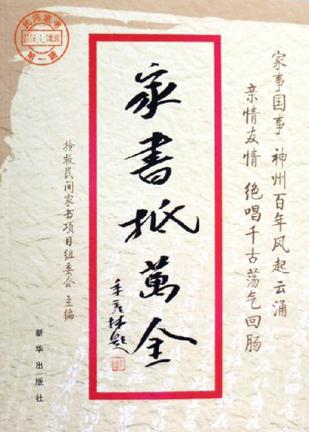 家事国事 神州百年风起云涌
亲情友情 绝唱千古荡气回肠
家書抵萬金
季羡林題
抢救民间家书项目组委会 主编
新华出版社
民间家书
北京